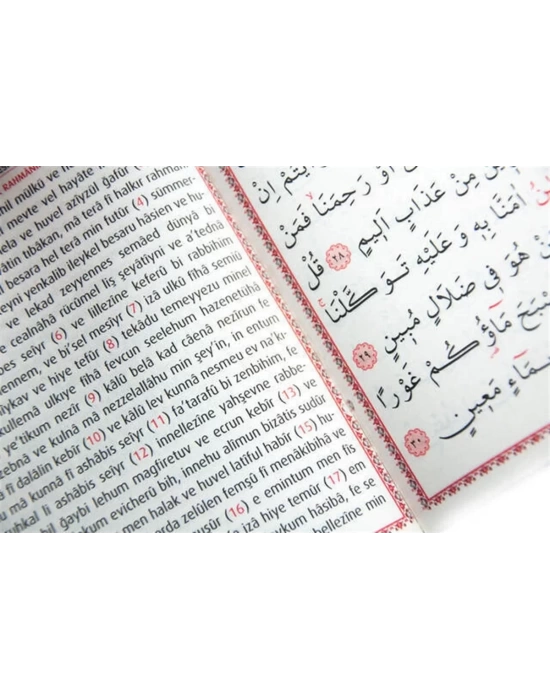 RAHMANİ
mil mülkü ve h
meyte vel hayâte
ela ve huvel azîyzül ğafûr
âtin tıbâkan, mâ terâ fî halkır rahmân
l besara hel terâ min futûr (4) sümmer-
eyni yenkalib ileykel besaru hâsien ve hu-
ve lekad zeyyennes semâed dünyâ bi
ve cealnâhâ rücûmel liş şeyâtîyni ve a'tednâ
bes seîyr (6) ve lillezîne keferû bi rabbihim
ennem, ve bi'sel mesîyr (7) izâ ulkû fîhâ semiû
hîykav ve hiye tefûr (8) tekâdu temeyyezu minel
küllemâ ulkıye fîhâ fevcun seelehum hazenetühâ
e'tikum nezîr (9) kâlû belâ kad câenâ nezîrun fe
zebnâ ve kulnâ mâ nezzelallâhu min şey'in, in entum
â fî dalâlin kebîr (10) ve kâlû lev kunnâ nesmeu ev na'k-
u mâ kunnâ fî ashâbis seîyr (11) fa'tarafû bi zenbihim, fe
uhkal li ashâbis seîyr (12) innellezîne yahşevne rabbe-
bil ğaybi lehum mağfiretuv ve ecrun kebîr (13) ve
kum evicherû bih, innehu alîmun bizâtis sudûr
men halak ve huvel latîful habîr (15) hu-
arda zelûlen femşû fî menâkibihâ ve
nuşûr (16) e emintum men fis
â izâ hiye temûr (17) em
aykum hâsibâ, fe se
bellezîne min
اَوْ رَحِمَنَا فَمَنْ
مِنْ عَذَابٍ اَلِيمٍ ٢٨ قُلْ
اٰمَنَّا بِهِ وَعَلَيْهِ تَوَكَّلْنَا
هُوَ فِى ضَلَالٍ مُبِينٍ ٢٩
مَاؤُكُمْ غَوْرًا
مَعِينٍ ٣٠